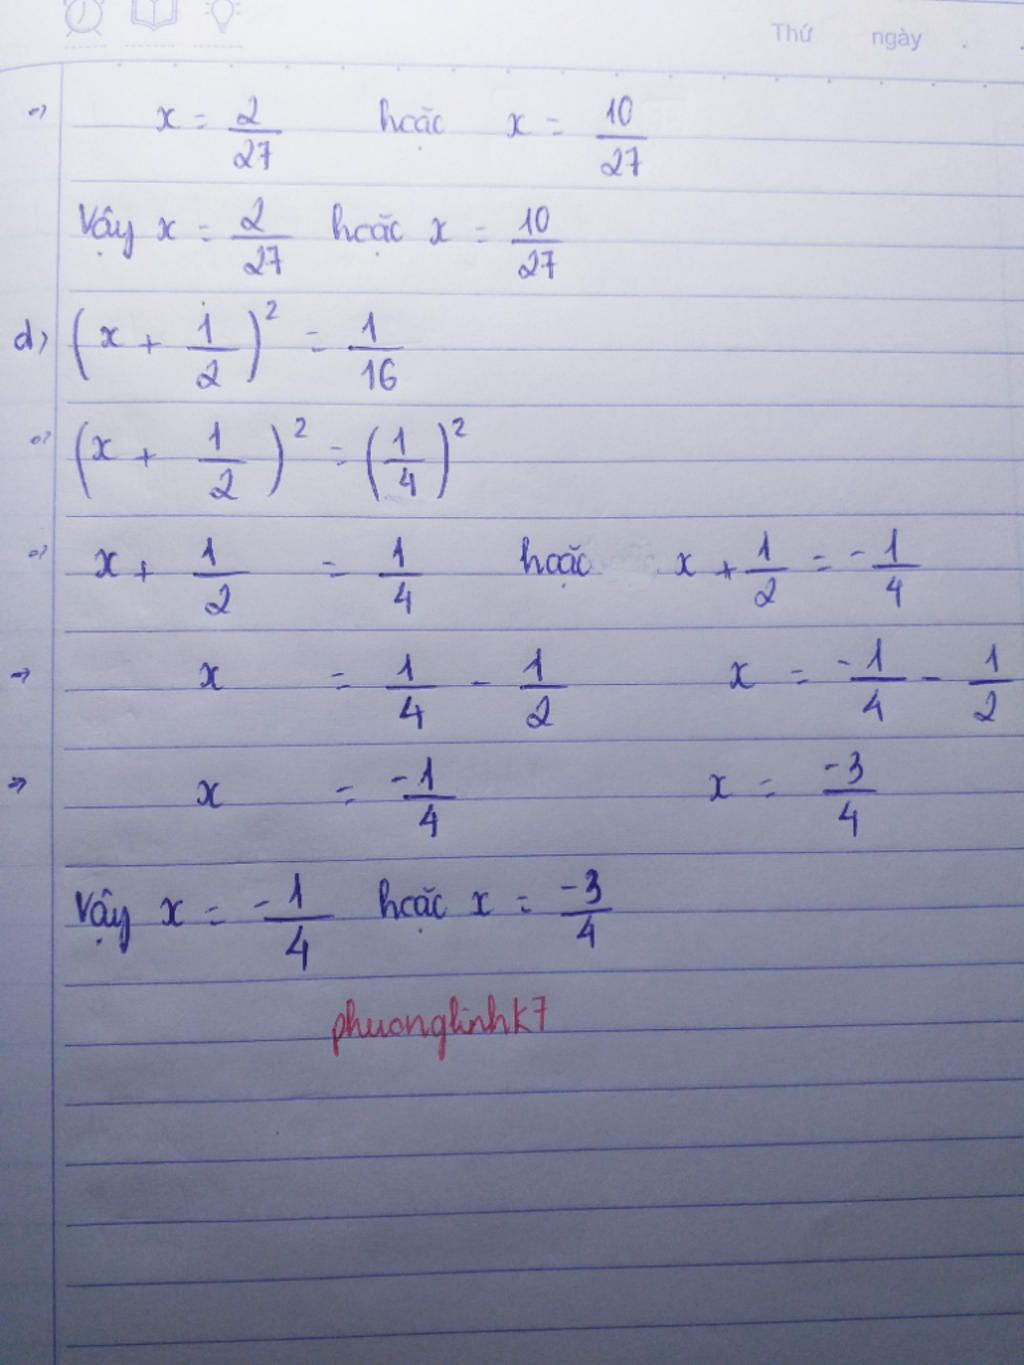 Thứ ngày
=> x = 2/27 hoặc x = 10/27
Vậy x = 2/27 hoặc x = 10/27
d) (x + 1/2)² = 1/16
=> (x + 1/2)² = (1/4)²
=> x + 1/2 = 1/4 hoặc x + 1/2 = -1/4
=> x = 1/4 - 1/2 x = -1/4 - 1/2
=> x = -1/4 x = -3/4
Vậy x = -1/4 hoặc x = -3/4
phuonglinhk7